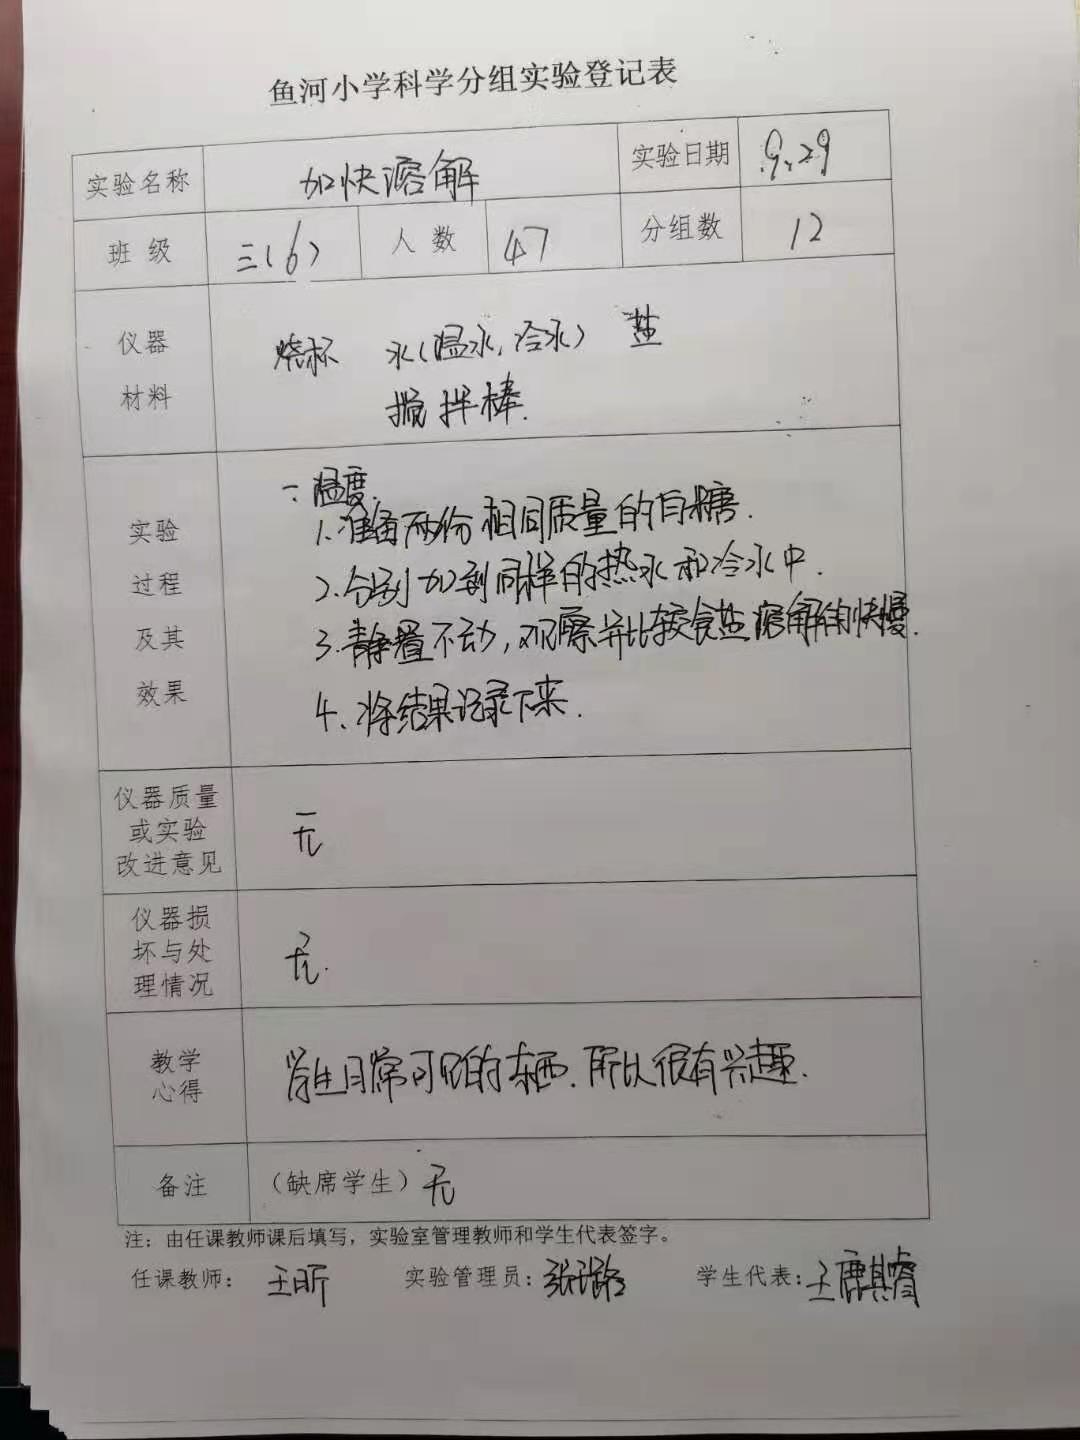 鱼河小学科学分组实验登记表
实验名称 加快溶解 实验日期 9.29
班 级 三(6) 人 数 47 分组数 12
仪器
材料
烧杯 水(温水,冷水) 盐
搅拌棒.
实验
过程
及其
效果
一.温度.
1.准备两份相同质量的白糖.
2.分别加到同样的热水和冷水中.
3.静置不动,观察并比较食盐溶解的快慢.
4、将结果记录下来.
仪器质量
或实验
改进意见
无
仪器损
坏与处
理情况
无.
教学
心得
学生日常可见的东西.所以很有兴趣.
备注 (缺席学生) 无
注:由任课教师课后填写,实验室管理教师和学生代表签字。
任课教师: 王昕 实验管理员: 张 学生代表: 王麒睿